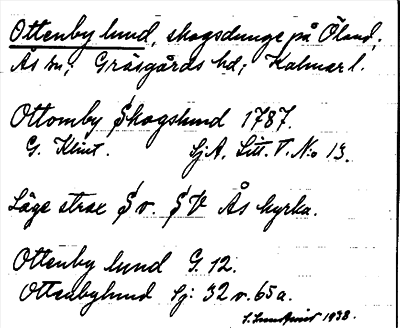 Ottenby lund, skogsdunge på Öland;
Ås sn; Gräsgårds hd; Kalmar l.
Ottomby Skogslund 1787.
G. Klint. SjA. Litt. T. N:o 13.
Läge strax S v. S V Ås kyrka.
Ottenby lund G. 12.
Ottenbylund Sj: 32 v. 65 a.
1938.